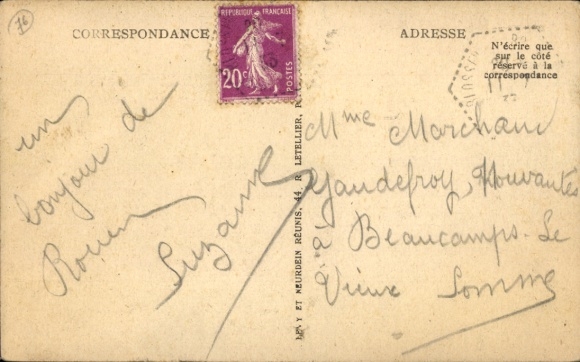 76
CORRESPONDANCE
ADRESSE
RÉPUBLIQUE FRANÇAISE
20c
POSTES
N'écrire que
sur le côté
réservé à la
correspondance
un
bonjour de
Rouen
Suzanne
LEVY ET NEURDEIN RÉUNIS, 44, R. LETELLIER, P
Mme Marchand
Gaudefroy, Nouvautés
à Beaucamps-Le
Vieux Somme